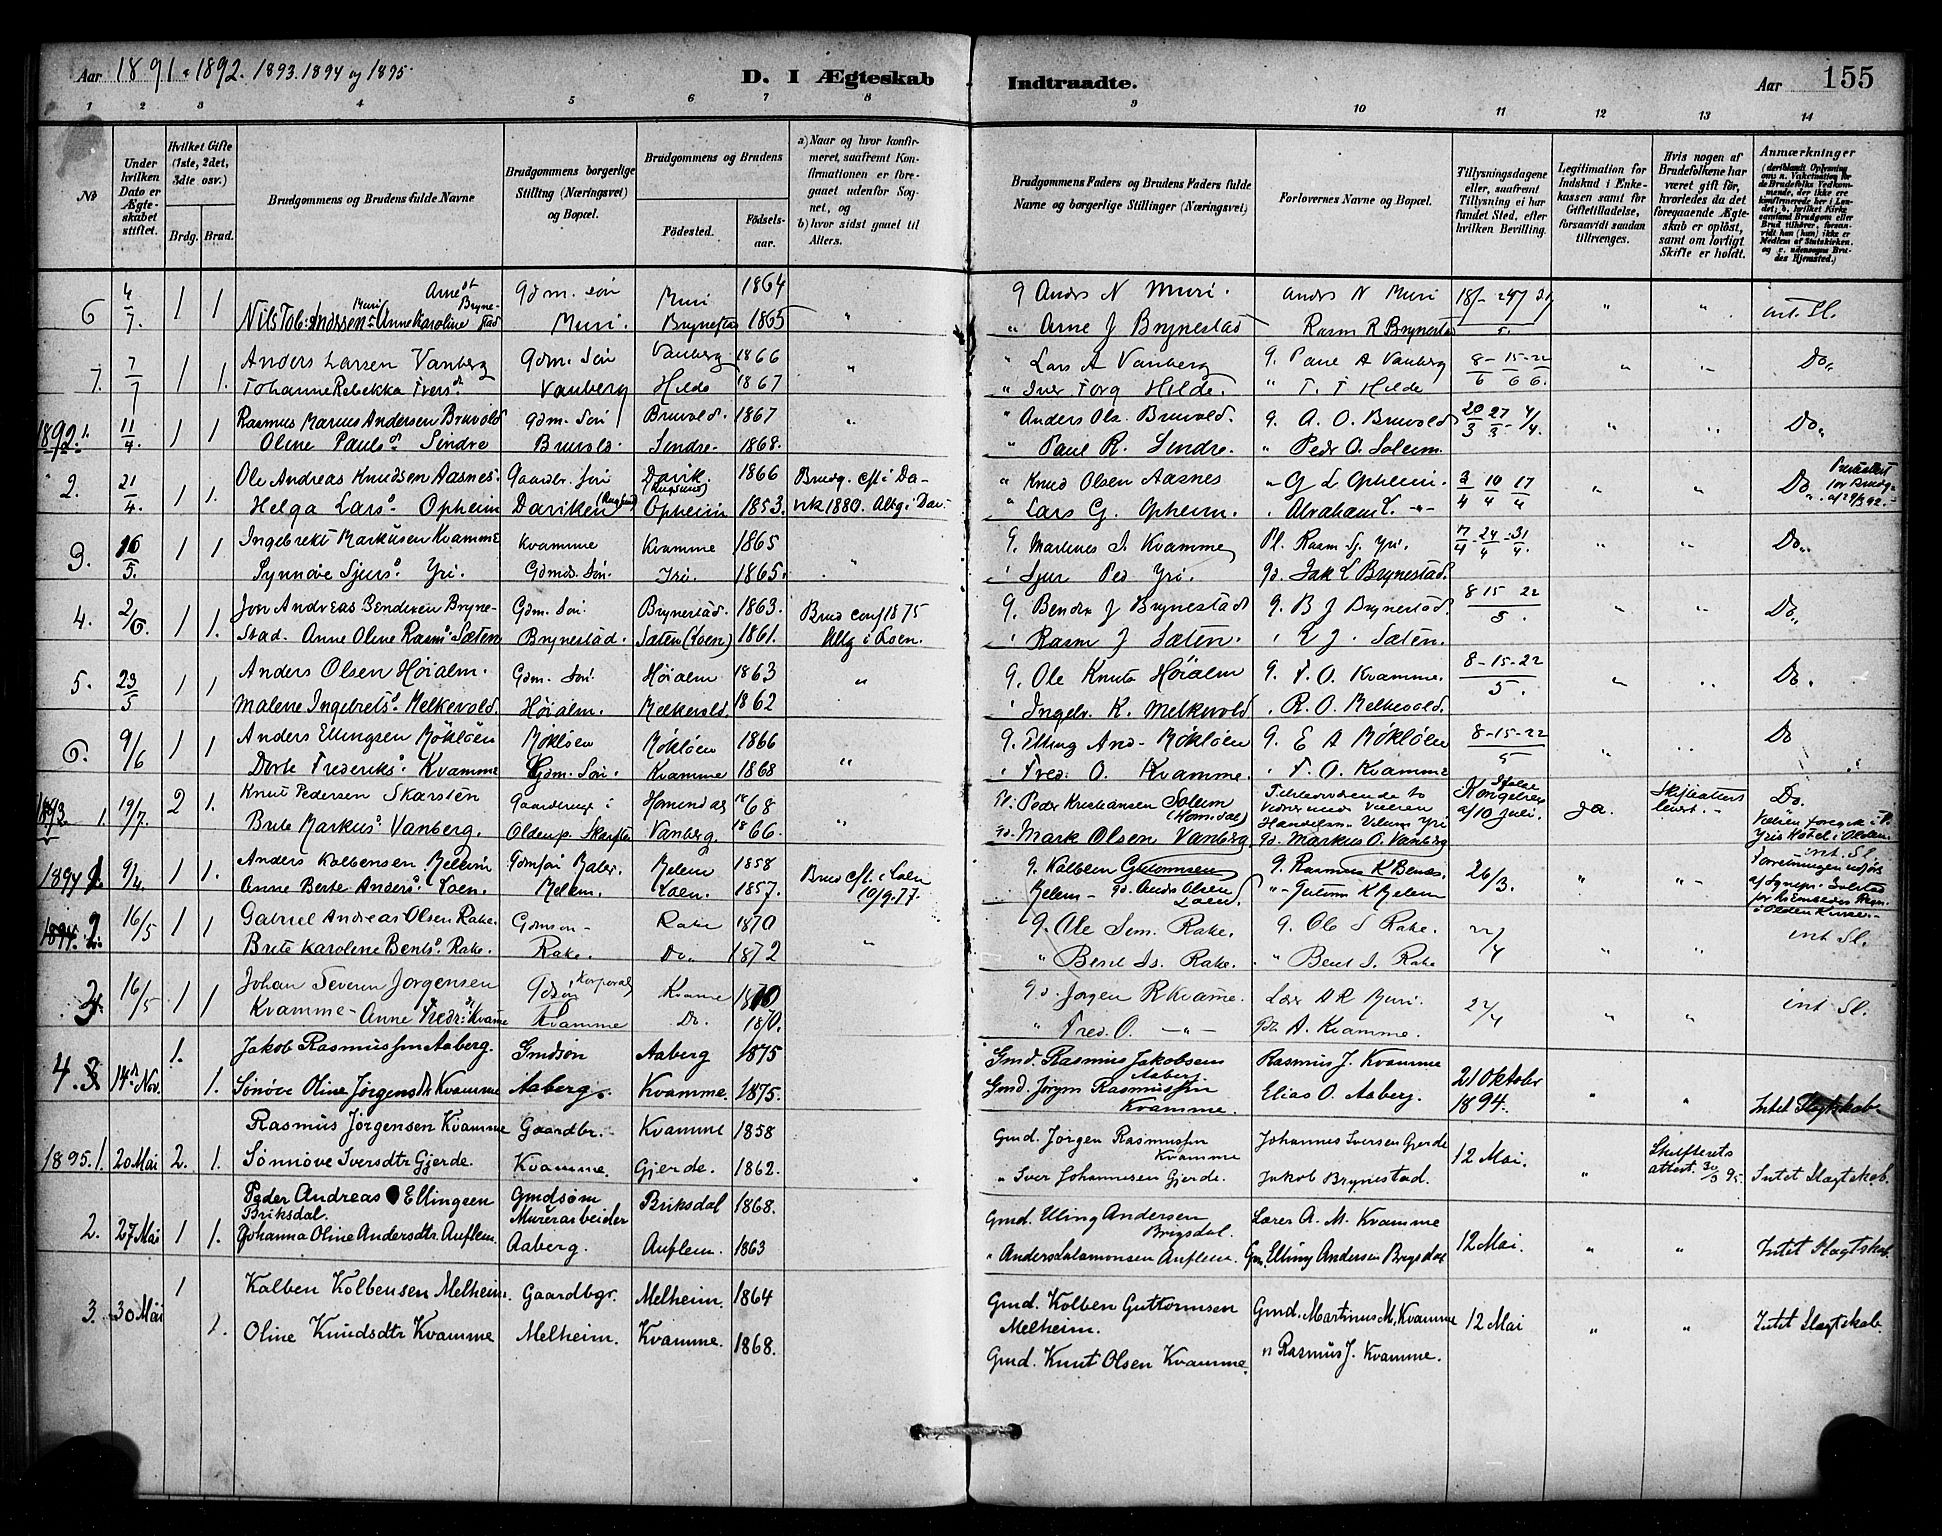 Aar 1891 & 1892. 1893. 1894 og 1895.
D. I Ægteskab
Indtraadte.
Aar 155
1 2 3 4 5 6 7 8 9 10 11 12 13 14
No
Under hvilken Dato er Ægteskabet stiftet.
Hvilket Gifte (1ste, 2det, 3die osv.)
Brdg. Brud.
Brudgommens og Brudens fulde Navne
Brudgommens borgerlige Stilling (Næringsvei) og Bopæl.
Brudgommens og Brudens
Fødested.
Fødselsaar.
a) Naar og hvor konfirmeret, saafremt Konfirmationen er foregaaet udenfor Sognet, og
b) hvor sidst gaaet til Alters.
Brudgommens Faders og Brudens Faders fulde Navne og borgerlige Stillinger (Næringsvei)
Forlovernes Navne og Bopæl.
Tillysningsdagene eller, saafremt Tillysning ei har fundet Sted, efter hvilken Bevilling.
Legitimation for Indskud i Enkekassen samt for Giftetilladelse, forsaavidt saadan tiltrænges.
Hvis nogen af Brudefolkene har været gift før, hvorledes da det foregaaende Ægteskab er opløst, samt om lovligt Skifte er holdt.
Anmærkninger
6 4/7. 1 1 Nils Tob: Anderssen Muri Anne Karoline Arnesdt Brynestad Gdm. søn Muri. Muri 1864 Brynestad 1865 "
G Anders N Muri. Anders N Muri
" Arne J Brynestad Rasm R Brynestad " " int. Sl.
7. 7/7 1 1. Anders Larsen Vanberg Gdm. Søn Vanberg 1866
Johanne Rebekka Ivers dt Vanberg Hilde 1867 "
" Lars A Vanberg G. A Vanberg 8-15-22
" Iver Hilde. " Hilde 6 6 6. " " Do"
1892. 1. 11/4. 1 1 Rasmus Marius Andersen Bruvold Gdm. Søn Bruvold. 1867
Oline Pauls dt Sindre Bruvold. Sindre 1868. "
" Anders Ols. Bruvold. G. A. O. Bruvold 20/3 27/3 - 4/4.
" Paul R. Sindre. " Peder O. Solum. " " Do"
2. 21/4. 1 1. Ole Andreas Knudsen Aasnes. Gaardbr. søn Davik. 1866 Brudg. cft i Da-
Helga Lars dt Opheim Daviken Opheim 1853. vik 1880. Altg i Dav-
" Knud Olsen Aasnes " G L Opheim. 3/4 10/4 17/4
" Lars G. Opheim. " Abraham L. -"- " " Do
3. 16/5. 1 1 Ingebrekt Markusen Kvamme Kvamme Kvamme 1865
Synnøve Sjurs dt Yri. Gdmds. Søn. Yri. 1865. "
G. Martines I. Kvamme Pl. Rasm. Sj. Yri.
" Sjur Ped Yri. Gd. Jak L Brynestad. " " Do"
4. 2/6. 1 1. Jon Andreas Bendixen Bryne- Gdm. Søn Brynestad. 1863. Brud conf 1875
stad. Anne Oline Rasm dt Sæten Brynestad. Sæten (Loen) 1861. Altg i Loen.
G. Bendix J Brynestad G. B J Brynestad 8 15 22
" Rasm J Sæten. " E J. Sæten. 5. " " Do"
5. 23/5 1 1 Anders Olsen Høialm. Gdm. Søn Høialm 1863
Malene Ingebrets dt Melkevold. Høialm. Melkevold. 1862 "
G. Ole Knuts Høialm G. F. O. Kvamme. 8-15-22
" Ingebr. K. Melkevold " R. O. Melkevold. 5. " " Do.
6. 9/6 1 1 Anders Ellingsen Møkløen Møkløen Møkløen 1866
Dorte Frederiks dt Kvamme Gdm. Søn. Kvamme 1868 "
G. Elling And. Møkløen G. E A Møkløen 8-15-22
" Fred. O. Kvamme. " F. O. Kvamme 5 " " Do
1893 1. 19/7. 2 1. Knut Pedersen Skarstén Gaardbruge i Homindal 1868
Brite Markus dt Vanberg. Oldenp. Vanberg. 1866. "
Pl. Peder Kristiansen Solum (Hornidal)
Gd. Mark Olsen Vanberg Gd. Markus O. Vanberg af 10 Juli. ja. Skifteattest levert. Do.
1894 1. 9/4. 1 1. Anders Kolbensen Melem Gdmsøn Melem 1858 Brud cft. i Loen
Anne Berte Anders dt Loen. Melem. Loen. 1857. 10/9.77.
G. Kolben Guttormsen G. Rasmus K Benes.
Melem - Gd. Anders Olsen Loen. " - Guttorm K Melem 26/3. " " int. Sl.
2. 16/5 1 1 Gabriel Andreas Olsen Rake. Gdmsøn Rake 1870
Brite Karolene Bents dt Rake. Rake. Do" 1872 "
G. Ole Sem. Rake. G. Ole S Rake. 22/4
" Bent Is. Rake. " Bent I. Rake " " int Sl.
3 16/5 1 1 Johan Severin Jørgensen Gdsøn, Korporal Kvamme 1870
Kvamme - Anne Fredr. dt Kvamme Kvamme Do. 1870.
Gd. Jørgen R Kvamme. Lærer A R Muri. 22/4
" Fred. O. -"- Gd. A. Kvamme. " " int Sl.
4. 14de Nov. 1. 1. Jakob Rasmussen Aaberg. Gmdsøn Aaberg 1875
Sønøve Oline Jørgensdt Kvamme Aaberg. Kvamme. 1875.
Gmd. Rasmus Jakobsen Aaberg Rasmus J. Kvamme
Gmd. Jørgen Rasmussen Kvamme. Elias O. Aaberg. 21 Oktober 1894. " " Intet Slagtskab.
1895. 1. 20 Mai 2. 1. Rasmus Jörgensen Kvamme Gaardbr. Kvamme 1858
Sönnöve Iversdtr Gjerde. Kvamme. Gjerde. 1862.
Gmd. Jörgen Rasmussen Kvamme Johannes Iversen Gjerde
" Iver Johannesen Gjerde. Jakob Brynestad. 12 Mai. " Skifterets attest. 30/3 95. Intet Slagtskab.
2. 27 Mai 1 1. Peder Andreas Ellingsen Briksdal. Gmdsøn Murerarbeider Briksdal 1868.
Johanna Oline Andersdtr. Auflem. Aaberg. Auflem. 1863
Gmd. Elling Andersen Brigsdal. Lærer A. M. Kvamme
" Anders Salamonsen Auflem. Gm. Elling Andersen Brigsdal 12 Mai. " " Intet Slagtskab.
3. 30 Mai 1 1. Kolben Kolbensen Melheim. Gaardbgr. Melheim. 1864
Oline Knudsdtr Kvamme Melheim. Kvamme. 1868.
Gmd. Kolben Guttormsen Melheim. Gmd. Martinus M. Kvamme
Gmd. Knut Olsen Kvamme " Rasmus J. Kvamme. 12 Mai " " Intet Slagtskab.